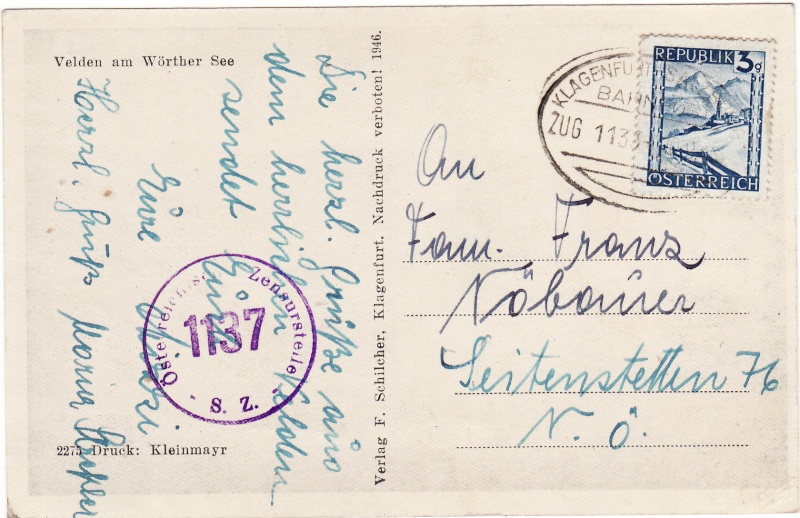 Velden am Wörther See
Die herzl. Grüße aus
dem herrlichen Velden
sendet Euch
Eure Mitzi
Herzl. Gruß Maria
Österreichis. Zensurstelle
1137
S. Z.
2275 Druck: Kleinmayr
Verlag F. Schilcher, Klagenfurt. Nachdruck verboten! 1946.
KLAGENFURT
BAHN
ZUG 113
REPUBLIK 3g
ÖSTERREICH
An
Fam. Franz
Nöbauer
Seitenstetten 76
N. Ö.